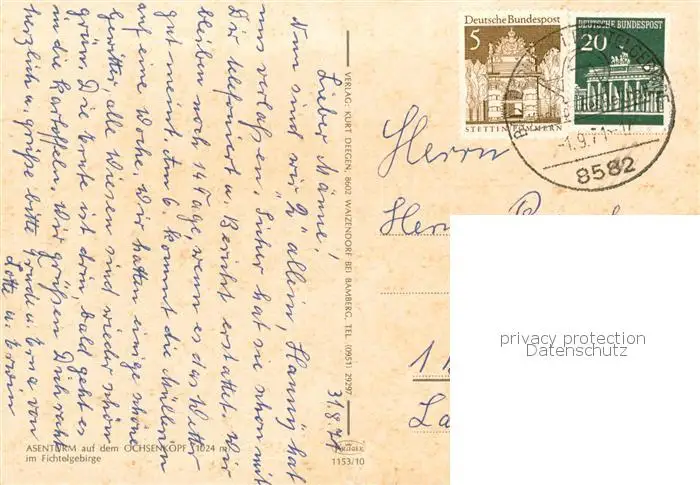 31.8.71
Lieber Männe,
Nun sind wir "2" allein, Hanny hat
uns verlassen. Sicher hat sie schon mit
Dir telefoniert u. Bericht erstattet. Wir
bleiben noch 14 Tage, wenn es das Wetter
gut meint. Am 6. kommt die Müllern
auf eine Woche. Wir hatten einige schöne
Gewitter, alle Wiesen sind wieder schön
grün. Die Ernte ist drin, bald geht es
in die Kartoffeln. Wir grüßen Dich recht
herzlich u. grüße bitte u. Erna von
Lotte u. Erwin
ASENTURM auf dem OCHSENKOPF 1024 m
im Fichtelgebirge
1153/10
VERLAG: KURT DEEGEN, 8602 WAIZENDORF BEI BAMBERG, TEL. (0951) 29297
Deutsche Bundespost
5
STETTIN/POMMERN
DEUTSCHE BUNDESPOST
20
-1.9.71-17
8582
Herrn
privacy protection
Datenschutz